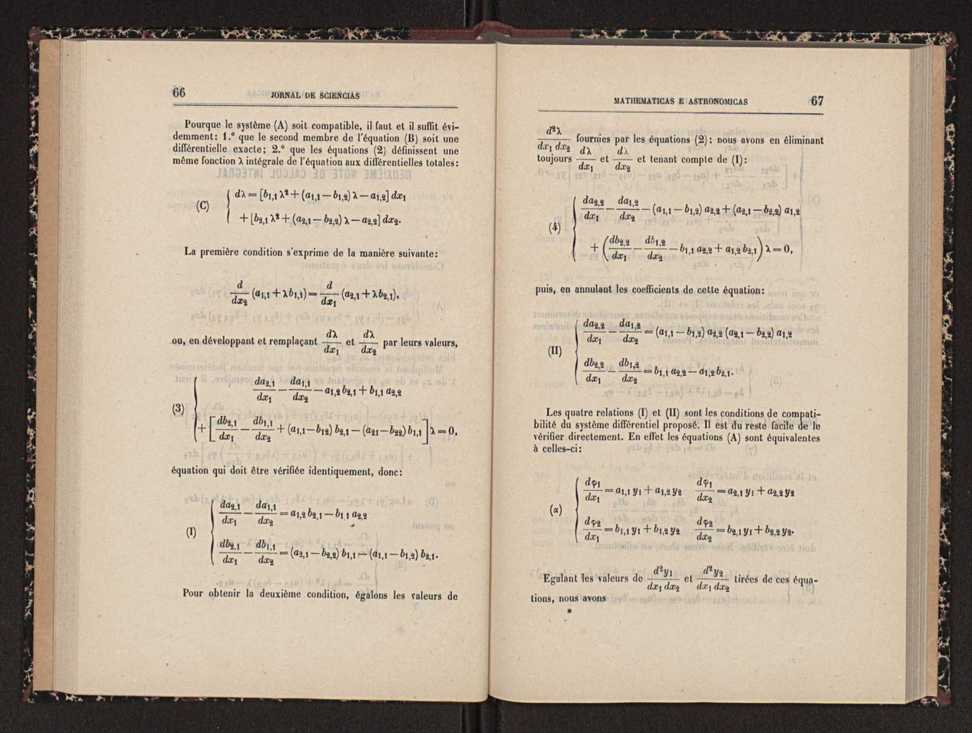 66
JORNAL DE SCIENCIAS
Pourque le système (A) soit compatible, il faut et il suffit évi-
demment: 1.° que le second membre de l'équation (B) soit une
différentielle exacte; 2.° que les équations (2) définissent une
même fonction λ intégrale de l'équation aux différentielles totales:
(C) { dλ = [b₁,₁ λ² + (a₁,₁ — b₁,₂) λ — a₁,₂] dx₁
+ [b₂,₁ λ² + (a₂,₁ — b₂,₂) λ — a₂,₂] dx₂.
La première condition s'exprime de la manière suivante:
d/dx₂ (a₁,₁ + λb₁,₁) = d/dx₁ (a₂,₁ + λb₂,₁),
ou, en développant et remplaçant dλ/dx₁ et dλ/dx₂ par leurs valeurs,
(3) { da₂,₁/dx₁ — da₁,₁/dx₂ — a₁,₂ b₂,₁ + b₁,₁ a₂,₂
+ [db₂,₁/dx₁ — db₁,₁/dx₂ + (a₁,₁ — b₁₂) b₂,₁ — (a₂₁ — b₂₂) b₁,₁] λ = 0,
équation qui doit être vérifiée identiquement, donc:
(I) { da₂,₁/dx₁ — da₁,₁/dx₂ = a₁,₂ b₂,₁ — b₁ ₁ a₂,₂
db₂,₁/dx₁ — db₁,₁/dx₂ = (a₂,₁ — b₂,₂) b₁,₁ — (a₁,₁ — b₁,₂) b₂,₁.
Pour obtenir la deuxième condition, égalons les valeurs de
MATHEMATICAS E ASTRONOMICAS
67
d²λ/dx₁ dx₂ fournies par les équations (2); nous avons en éliminant
toujours dλ/dx₁ et dλ/dx₂ et tenant compte de (I):
(4) { da₂,₂/dx₁ — da₁,₂/dx₂ — (a₁,₁ — b₁,₂) a₂,₂ + (a₂,₁ — b₂,₂) a₁,₂
+ (db₂,₂/dx₁ — db₁,₂/dx₂ — b₁,₁ a₂,₂ + a₁,₂ b₂,₁) λ = 0,
puis, en annulant les coefficients de cette équation:
(II) { da₂,₂/dx₁ — da₁,₂/dx₂ = (a₁,₁ — b₁,₂) a₂,₂ (a₂,₁ — b₂,₂) a₁,₂
db₂,₂/dx₁ — db₁,₂/dx₂ = b₁,₁ a₂,₂ — a₁,₂ b₂,₁.
Les quatre relations (I) et (II) sont les conditions de compati-
bilité du système différentiel proposé. Il est du reste facile de le
vérifier directement. En effet les équations (A) sont équivalentes
à celles-ci:
(α) { dφ₁/dx₁ = a₁,₁ y₁ + a₁,₂ y₂ dφ₁/dx₂ = a₂,₁ y₁ + a₂,₂ y₂
dφ₂/dx₁ = b₁,₁ y₁ + b₁,₂ y₂ dφ₂/dx₂ = b₂,₁ y₁ + b₂,₂ y₂.
Egalant les valeurs de d²y₁/dx₁ dx₂ et d²y₂/dx₁ dx₂ tirées de ces équa-
tions, nous avons
*